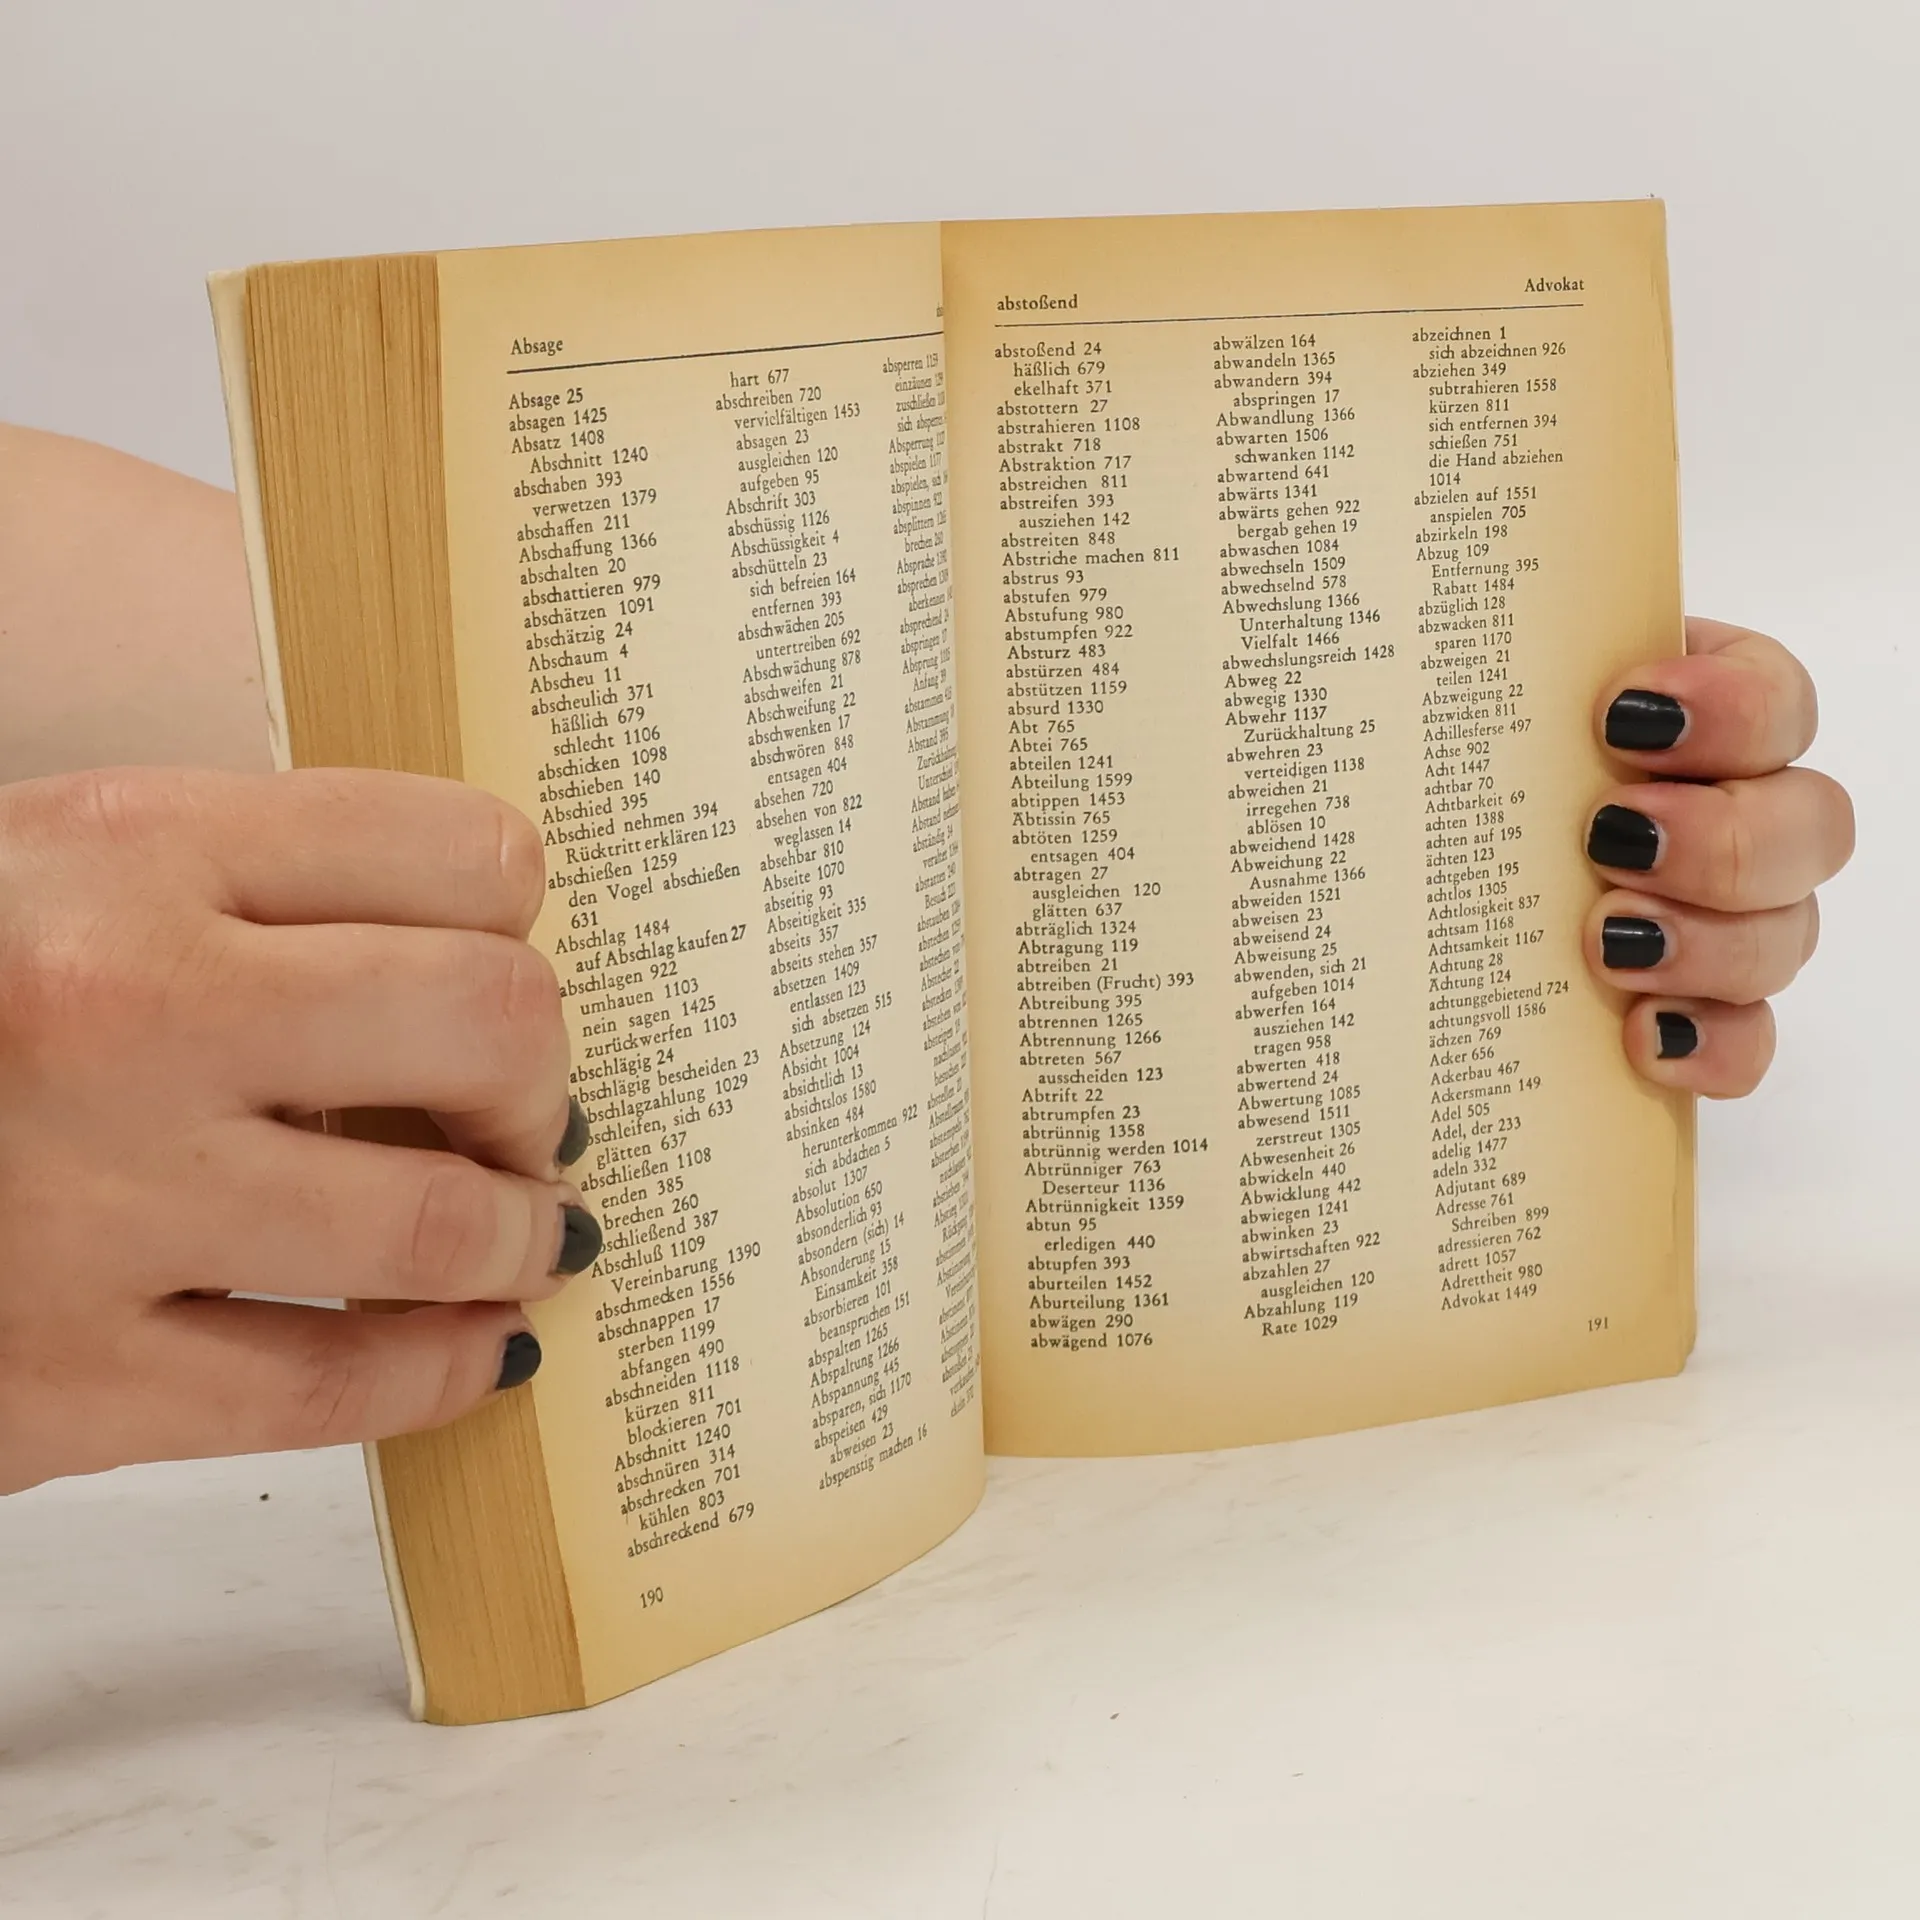 Absage
Absage 25
absagen 1425
Absatz 1408
Abschnitt 1240
abschaben 393
verwetzen 1379
abschaffen 211
Abschaffung 1366
abschalten 20
abschattieren 979
abschätzen 1091
abschätzig 24
Abschaum 4
Abscheu 11
abscheulich 371
häßlich 679
schlecht 1106
abschicken 1098
abschieben 140
Abschied 395
Abschied nehmen 394
Rücktritt erklären 123
abschießen 1259
den Vogel abschießen
631
Abschlag 1484
auf Abschlag kaufen 27
abschlagen 922
umhauen 1103
nein sagen 1425
zurückwerfen 1103
abschlägig 24
abschlägig bescheiden 23
bschlagzahlung 1029
bschleifen, sich 633
glätten 637
abschließen 1108
enden 385
brechen 260
bschließend 387
Abschluß 1109
Vereinbarung 1390
abschmecken 1556
abschnappen 17
sterben 1199
abfangen 490
abschneiden 1118
kürzen 811
blockieren 701
Abschnitt 1240
abschnüren 314
abschrecken 701
kühlen 803
abschreckend 679
hart 677
abschreiben 720
vervielfältigen 1453
absagen 23
ausgleichen 120
aufgeben 95
Abschrift 303
abschüssig 1126
Abschüssigkeit 4
abschütteln 23
sich befreien 164
entfernen 393
abschwächen 205
untertreiben 692
Abschwächung 878
abschweifen 21
Abschweifung 22
abschwenken 17
abschwören 848
entsagen 404
absehen 720
absehen von 822
weglassen 14
absehbar 810
Abseite 1070
abseitig 93
Abseitigkeit 335
abseits 357
abseits stehen 357
absetzen 1409
entlassen 123
sich absetzen 515
Absetzung 124
Absicht 1004
absichtlich 13
absichtslos 1580
absinken 484
herunterkommen 922
sich abdachen 5
absolut 1307
Absolution 650
absonderlich 93
absondern (sich) 14
Absonderung 15
Einsamkeit 358
absorbieren 101
beanspruchen 151
abspalten 1265
Abspaltung 1266
Abspannung 445
absparen, sich 1170
abspeisen 429
abweisen 23
abspenstig machen 16
absperren
einzäunen
zuschließen
sich
Absperrung
abspielen 1177
abspielen,
abspinnen 922
absplittern
brechen 260
Absprache
absprechen
aberkennen
absprechend
abspringen
Absprung
Anfang
abstammen
Abstammung
Abstand 395
190
abstoßend
Advokat
abstoßend 24
häßlich 679
ekelhaft 371
abstottern 27
abstrahieren 1108
abstrakt 718
Abstraktion 717
abstreichen 811
abstreifen 393
ausziehen 142
abstreiten 848
Abstriche machen 811
abstrus 93
abstufen 979
Abstufung 980
abstumpfen 922
Absturz 483
abstürzen 484
abstützen 1159
absurd 1330
Abt 765
Abtei 765
abteilen 1241
Abteilung 1599
abtippen 1453
Äbtissin 765
abtöten 1259
entsagen 404
abtragen 27
ausgleichen 120
glätten 637
abträglich 1324
Abtragung 119
abtreiben 21
abtreiben (Frucht) 393
Abtreibung 395
abtrennen 1265
Abtrennung 1266
abtreten 567
ausscheiden 123
Abtrift 22
abtrumpfen 23
abtrünnig 1358
abtrünnig werden 1014
Abtrünniger 763
Deserteur 1136
Abtrünnigkeit 1359
abtun 95
erledigen 440
abtupfen 393
aburteilen 1452
Aburteilung 1361
abwägen 290
abwägend 1076
abwälzen 164
abwandeln 1365
abwandern 394
abspringen 17
Abwandlung 1366
abwarten 1506
schwanken 1142
abwartend 641
abwärts 1341
abwärts gehen 922
bergab gehen 19
abwaschen 1084
abwechseln 1509
abwechselnd 578
Abwechslung 1366
Unterhaltung 1346
Vielfalt 1466
abwechslungsreich 1428
Abweg 22
abwegig 1330
Abwehr 1137
Zurückhaltung 25
abwehren 23
verteidigen 1138
abweichen 21
irregehen 738
ablösen 10
abweichend 1428
Abweichung 22
Ausnahme 1366
abweiden 1521
abweisen 23
abweisend 24
Abweisung 25
abwenden, sich 21
aufgeben 1014
abwerfen 164
ausziehen 142
tragen 958
abwerten 418
abwertend 24
Abwertung 1085
abwesend 1511
zerstreut 1305
Abwesenheit 26
abwickeln 440
Abwicklung 442
abwiegen 1241
abwinken 23
abwirtschaften 922
abzahlen 27
ausgleichen 120
Abzahlung 119
Rate 1029
abzeichnen 1
sich abzeichnen 926
abziehen 349
subtrahieren 1558
kürzen 811
sich entfernen 394
schießen 751
die Hand abziehen
1014
abzielen auf 1551
anspielen 705
abzirkeln 198
Abzug 109
Entfernung 395
Rabatt 1484
abzüglich 128
abzwacken 811
sparen 1170
abzweigen 21
teilen 1241
Abzweigung 22
abzwicken 811
Achillesferse 497
Achse 902
Acht 1447
achtbar 70
Achtbarkeit 69
achten 1388
achten auf 195
ächten 123
achtgeben 195
achtlos 1305
Achtlosigkeit 837
achtsam 1168
Achtsamkeit 1167
Achtung 28
Ächtung 124
achtunggebietend 724
achtungsvoll 1586
ächzen 769
Acker 656
Ackerbau 467
Ackersmann 149
Adel 505
Adel, der 233
adelig 1477
adeln 332
Adjutant 689
Adresse 761
Schreiben 899
adressieren 762
adrett 1057
Adrettheit 980
Advokat 1449
191